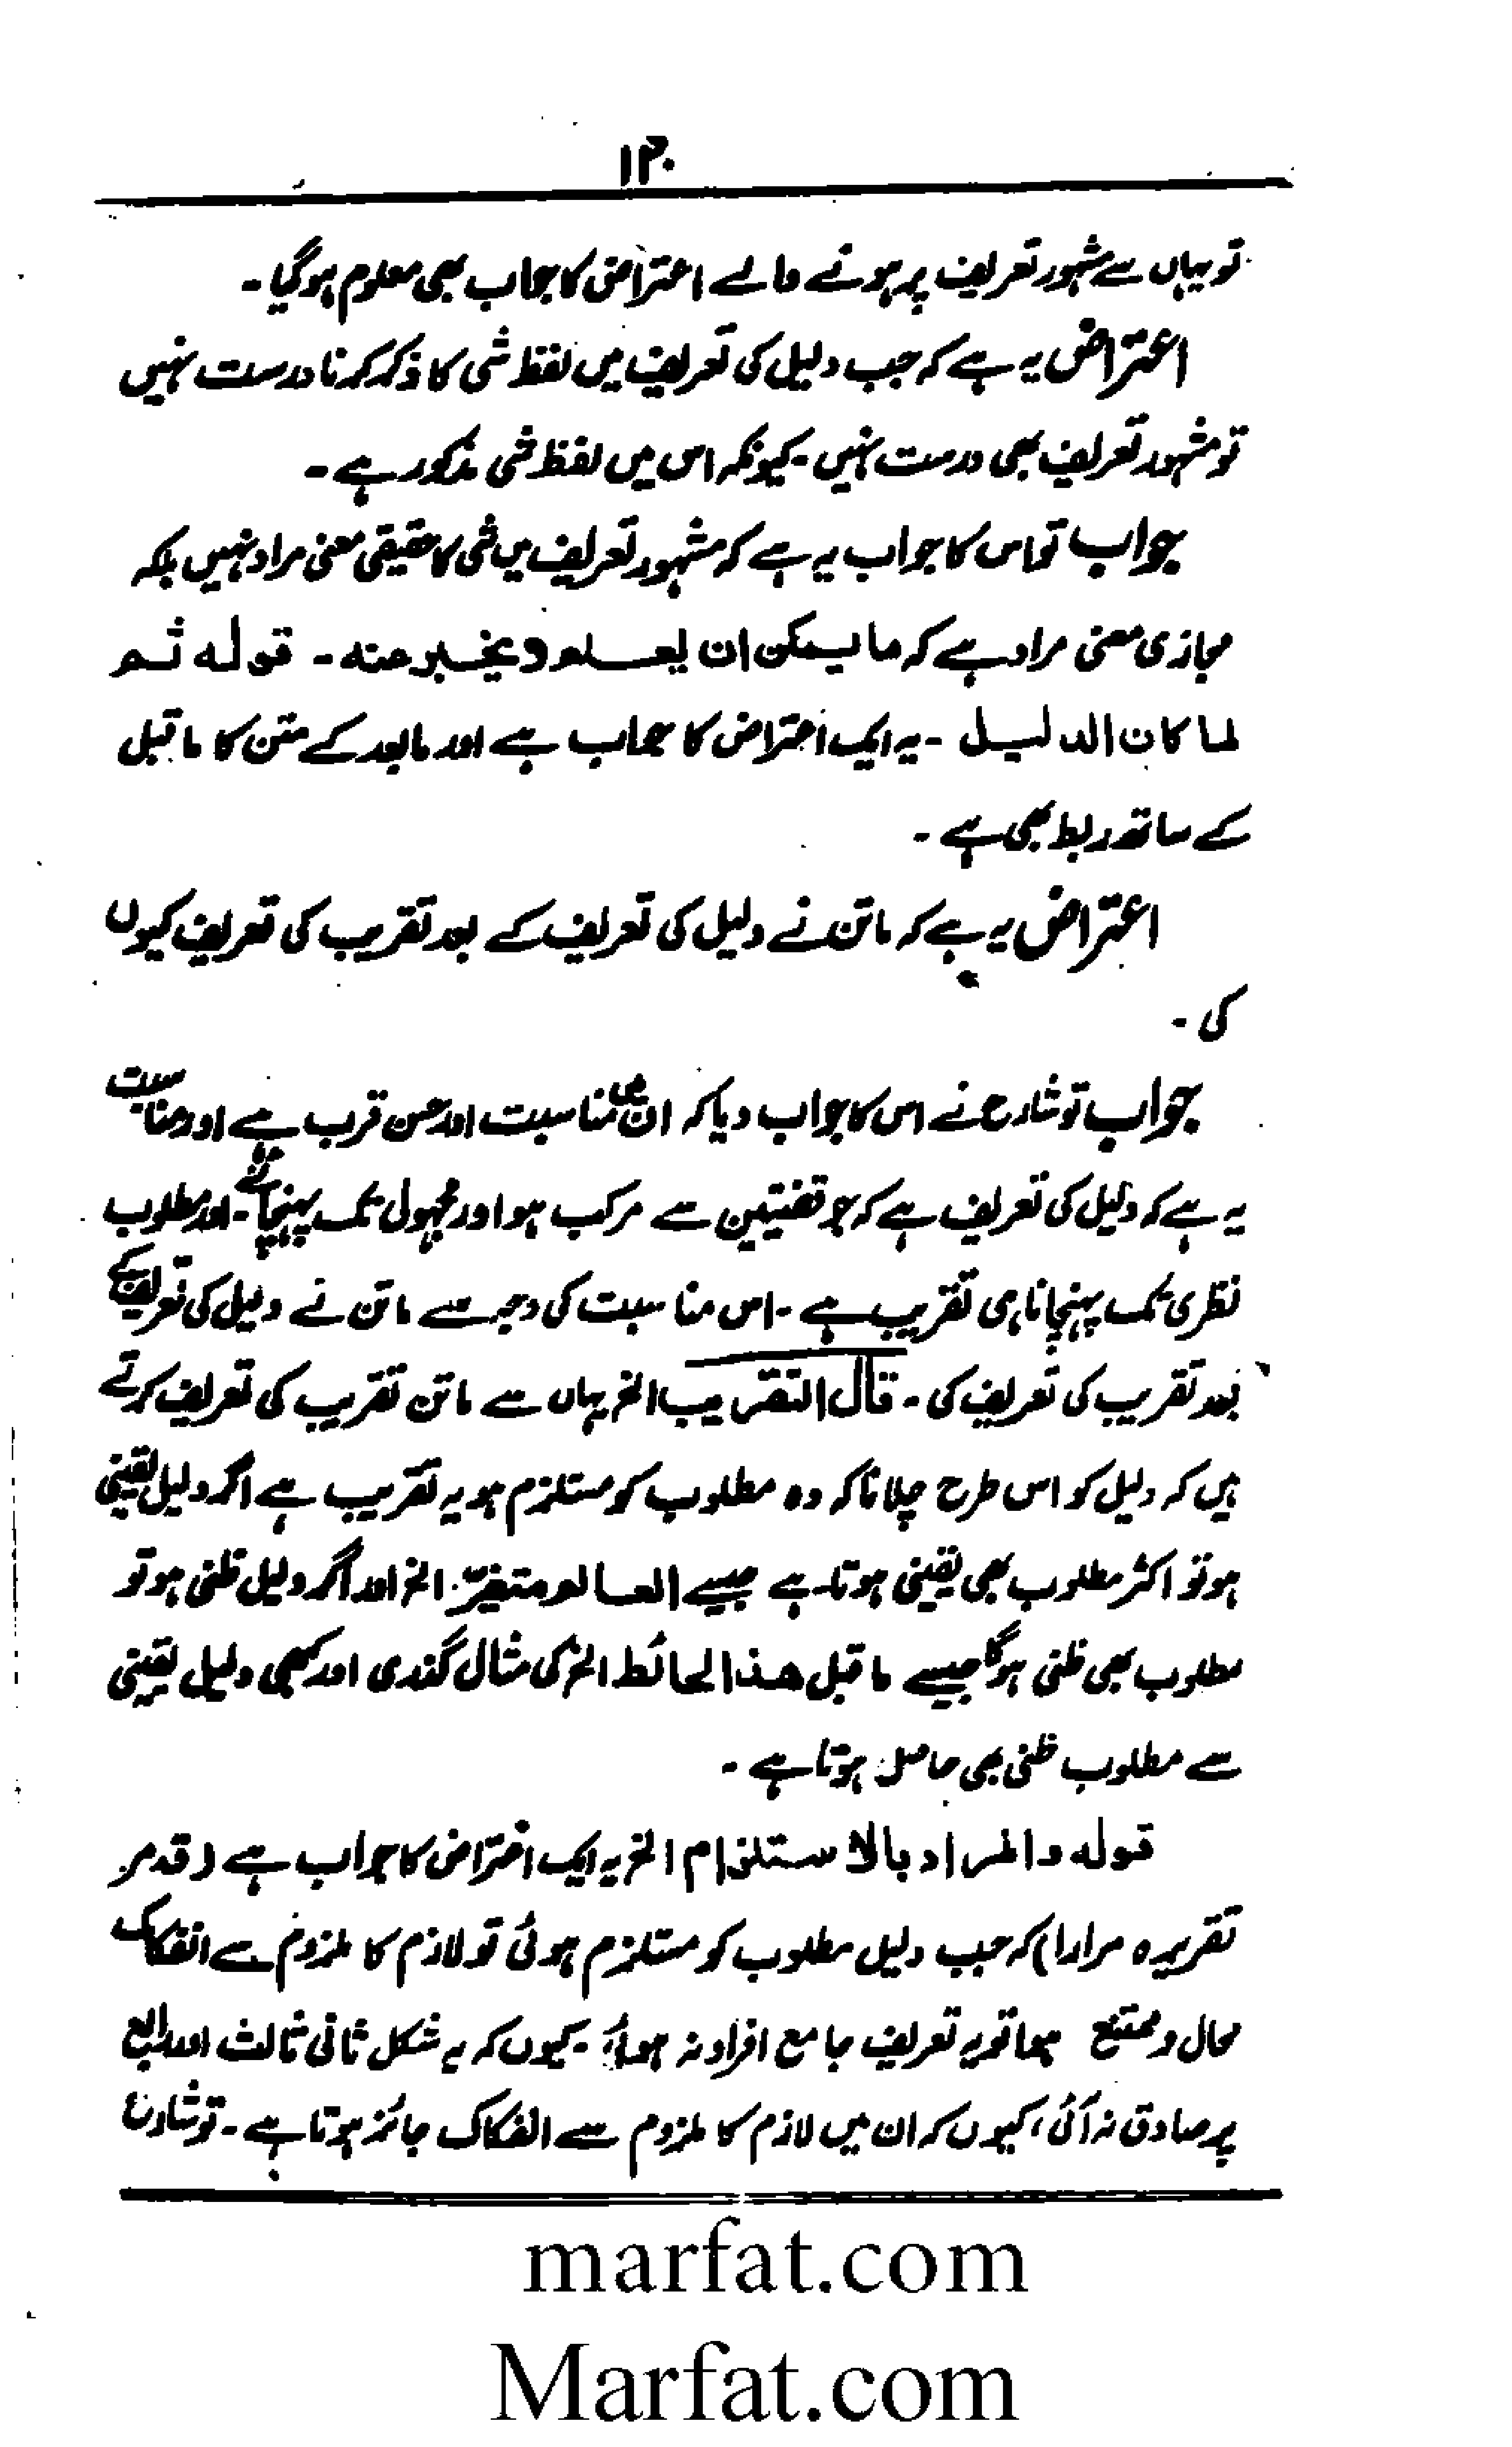 ۱۳۰
تو یہاں سے مشہور تعریف پر ہونے والے اعتراض کا جواب بھی معلوم ہوگیا۔
اعتراض یہ ہے کہ جب دلیل کی تعریف میں لفظ شی کا ذکر کرنا درست نہیں
تو مشہور تعریف بھی درست نہیں۔ کیونکہ اس میں لفظ شی مذکور ہے۔
جواب تو اس کا جواب یہ ہے کہ مشہور تعریف میں شی کا حقیقی معنی مراد نہیں بلکہ
مجازی معنی مراد ہے کہ ما یمکن ان یعلم و یخبر عنہ۔ قولہ ثم
لما کان الدلیل۔ یہ ایک اعتراض کا جواب ہے اور مابعد کے متن کا ماقبل
کے ساتھ ربط بھی ہے۔
اعتراض یہ ہے کہ ماتن نے دلیل کی تعریف کے بعد تقریب کی تعریف کیوں
کی۔
جواب تو شارح نے اس کا جواب دیا کہ ان میں مناسبت اور حسن قرب ہے اور مناسبت
یہ ہے کہ دلیل کی تعریف ہے کہ جو قضیتین سے مرکب ہو اور مجہول تک پہنچائے۔ اور مطلوب
نظری تک پہنچانا ہی تقریب ہے۔ اس مناسبت کی وجہ سے ماتن نے دلیل کی تعریف کے
بعد تقریب کی تعریف کی۔ قال التقریب الخ یہاں سے ماتن تقریب کی تعریف کرتے
ہیں کہ دلیل کو اس طرح چلانا کہ وہ مطلوب کو مستلزم ہو یہ تقریب ہے اگر دلیل یقینی
ہو تو اکثر مطلوب بھی یقینی ہوتا ہے جیسے العالم متغیر الخ اور اگر دلیل ظنی ہو تو
مطلوب بھی ظنی ہوگا جیسے ماقبل ھذا الحائط الخ کی مثال گذری اور کبھی دلیل یقینی
سے مطلوب ظنی بھی حاصل ہوتا ہے۔
قولہ والمراد بالاستلزام الخ یہ ایک اعتراض کا جواب ہے (قد مر
تقریرہ مرارا) کہ جب دلیل مطلوب کو مستلزم ہوئی تو لازم کا ملزوم سے انفکاک
محال و ممتنع ہوا تو یہ تعریف جامع افراد نہ ہوئی۔ کیوں کہ یہ شکل ثانی ثالث اور رابع
پر صادق نہ آئی، کیوں کہ ان میں لازم کا ملزوم سے انفکاک جائز ہوتا ہے۔ تو شارح
marfat.com
Marfat.com